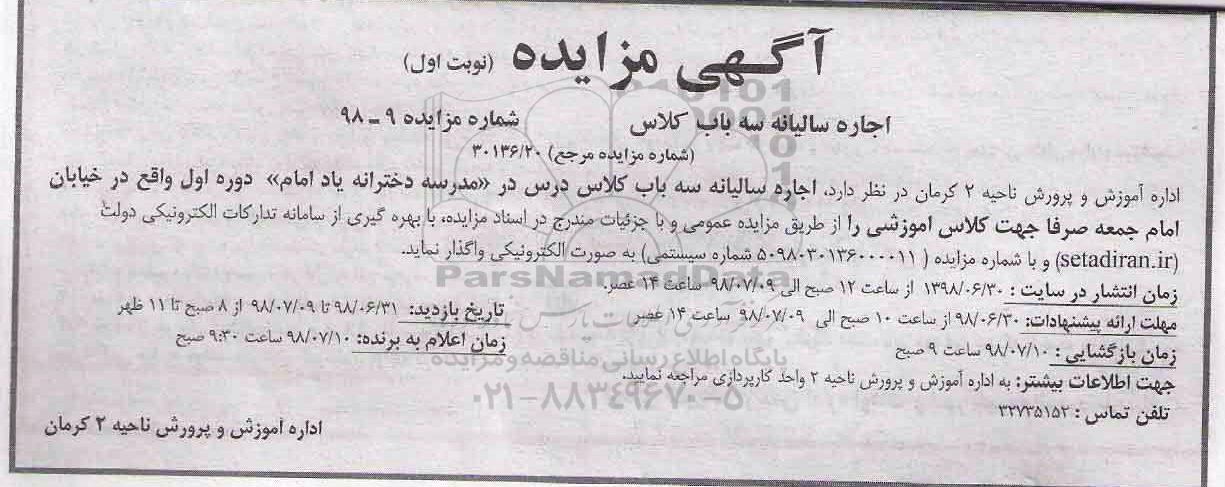 آگهی مزایده (نوبت اول)
اجاره سالیانه سه باب کلاس شماره مزایده ۹ ـ ۹۸
(شماره مزایده مرجع) ۳۰۱۳۶/۲۰
اداره آموزش و پرورش ناحیه ۲ کرمان در نظر دارد، اجاره سالیانه سه باب کلاس درس در «مدرسه دخترانه یاد امام» دوره اول واقع در خیابان
امام جمعه صرفا جهت کلاس اموزشی را از طریق مزایده عمومی و با جزئیات مندرج در اسناد مزایده، با بهره گیری از سامانه تدارکات الکترونیکی دولت
(setadiran.ir) و با شماره مزایده ( ۵۰۹۸۰۳۰۱۳۶۰۰۰۰۱۱ شماره سیستمی) به صورت الکترونیکی واگذار نماید.
زمان انتشار در سایت : ۱۳۹۸/۰۶/۳۰ از ساعت ۱۲ صبح الی ۹۸/۰۷/۰۹ ساعت ۱۴ عصر.
مهلت ارائه پیشنهادات: ۹۸/۰۶/۳۰ از ساعت ۱۰ صبح الی ۹۸/۰۷/۰۹ ساعت ۱۴ عصر تاریخ بازدید: ۹۸/۰۶/۳۱ تا ۹۸/۰۷/۰۹ از ۸ صبح تا ۱۱ ظهر
زمان بازگشایی : ۹۸/۰۷/۱۰ ساعت ۹ صبح زمان اعلام به برنده: ۹۸/۰۷/۱۰ ساعت ۹:۳۰ صبح
جهت اطلاعات بیشتر: به اداره آموزش و پرورش ناحیه ۲ واحد کارپردازی مراجعه نمایید.
تلفن تماس : ۳۲۷۳۵۱۵۲
اداره آموزش و پرورش ناحیه ۲ کرمان
ParsNamadData
پایگاه اطلاع رسانی مناقصه و مزایده
۰۲۱-۸۸۳۴۹۶۷۰-۵